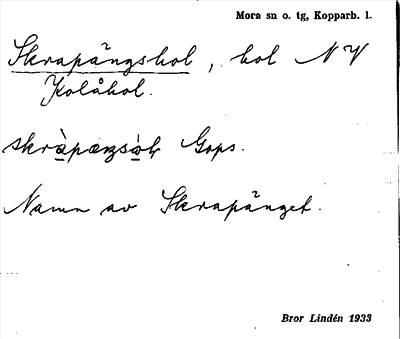 Mora sn o. tg, Kopparb. l.
Skrapängshol, hol NV
Kolåhol.
Gops.
Namn av Skrapänget.
Bror Lindén 1933